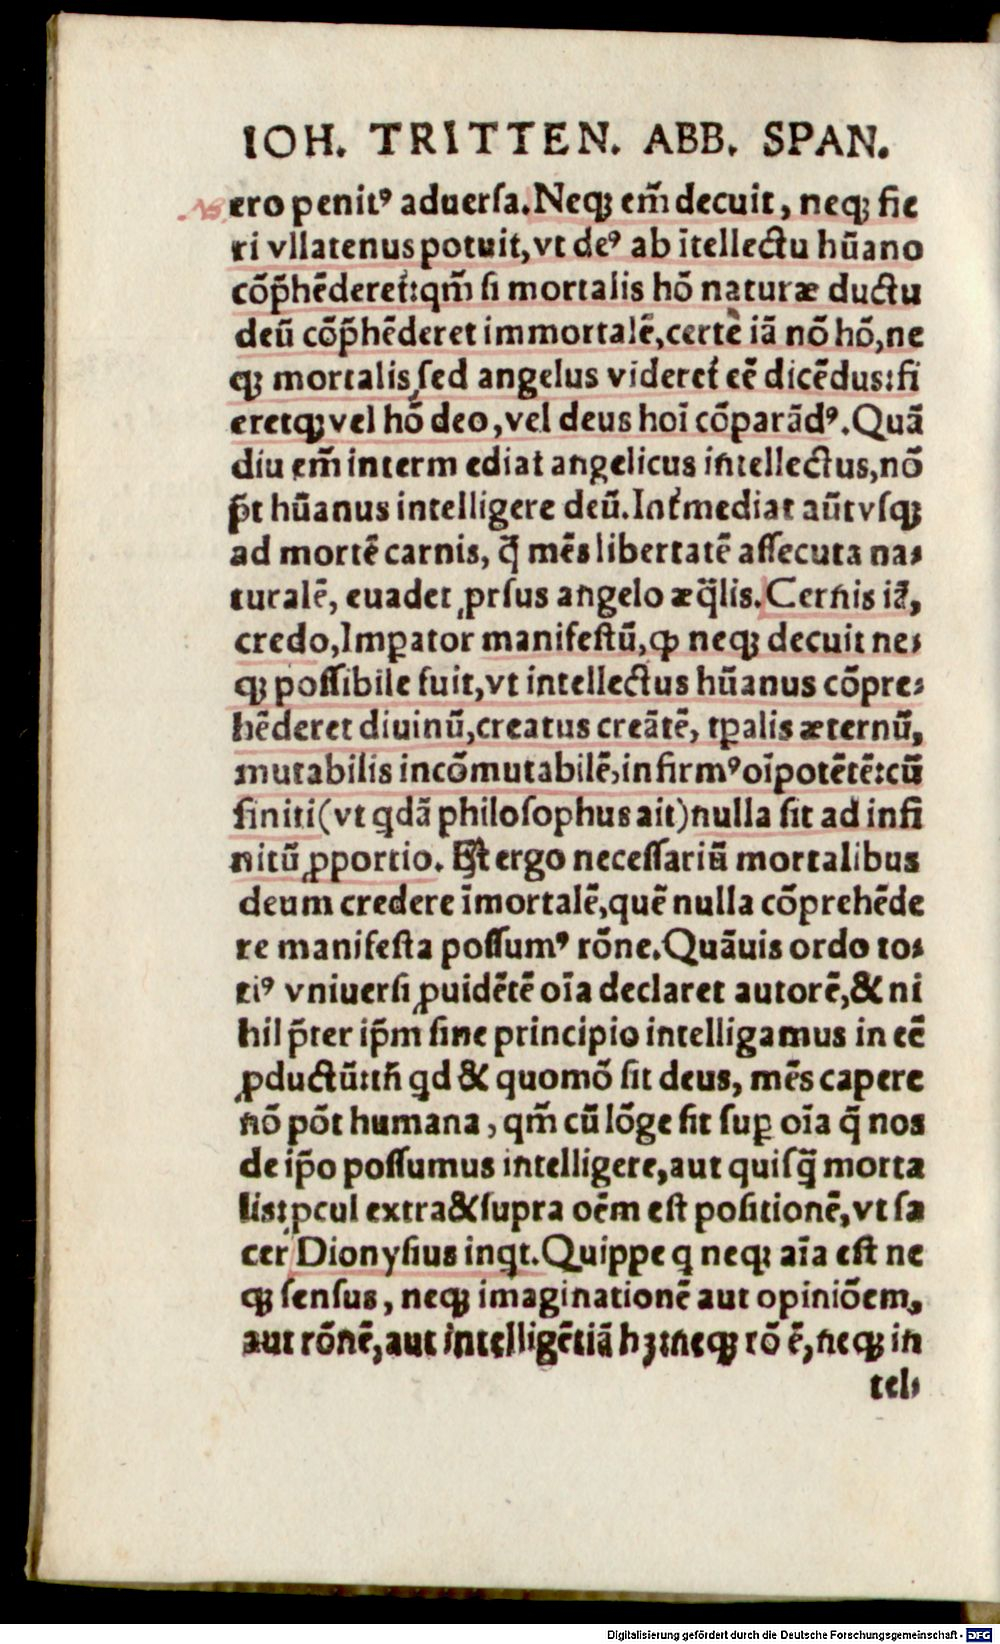 IOH. TRITTEN. ABB. SPAN.
ero penitꝰ aduerſa. Neqꝫ em̃ decuit, neqꝫ fie
ri vllatenus potuit, vt deꝰ ab ĩtellectu hũano
cõp̃hẽderet᷑: qm̃ ſi mortalis hõ naturæ ductu
deũ cõp̃hẽderet immortalẽ, certe iã nõ hõ, ne
qꝫ mortalis, ſed angelus videret᷑ eẽ dicẽdus: fi
eretqꝫ vel hõ deo, vel deus hoĩ cõparãdꝰ. Quã
diu em̃ interm ediat angelicus intellectus, nõ
p̃t hũanus intelligere deũ. Int᷑mediat aũt vſqꝫ
ad mortẽ carnis, q̃ mẽs libertatẽ aſſecuta na⸗
turalẽ, euadet ꝓrſus angelo æq̃lis. Cernis iã,
credo, Imꝑator manifeſtũ, ꝙ neqꝫ decuit ne⸗
qꝫ poſſibile fuit, vt intellectus hũanus cõpre⸗
hẽderet diuinũ, creatus creãtẽ, tꝑalis æternũ,
mutabilis incõmutabilẽ, infirmꝰ oĩpotẽtẽ: cũ
finiti (vt qdã philoſophus ait) nulla ſit ad infi
nitũ ꝓportio. Eſt ergo neceſſariũ mortalibus
deum credere ĩmortalẽ, quẽ nulla cõprehẽde
re manifeſta poſſumꝰ rõne. Quãuis ordo to⸗
tiꝰ vniuerſi ꝓuidẽtẽ oĩa declaret autorẽ, & ni
hil p̃ter ip̃m ſine principio intelligamus in eẽ
ꝓductũ: tñ qd & quomõ ſit deus, mẽs capere
nõ põt humana, qm̃ cũ lõge ſit ſuꝑ oĩa q̃ nos
de ip̃o poſſumus intelligere, aut quiſq̃ morta
lis: ꝓcul extra & ſupra oẽm eſt poſitionẽ, vt ſa
cer Dionyſius inqt. Quippe q neqꝫ aĩa eſt ne
qꝫ ſenſus, neqꝫ imaginationẽ aut opiniõem,
aut rõnẽ, aut intelligẽtiã hꝫ: neqꝫ rõ ẽ, neqꝫ in
tel⸗
Digitalisierung gefördert durch die Deutsche Forschungsgemeinschaft - DFG